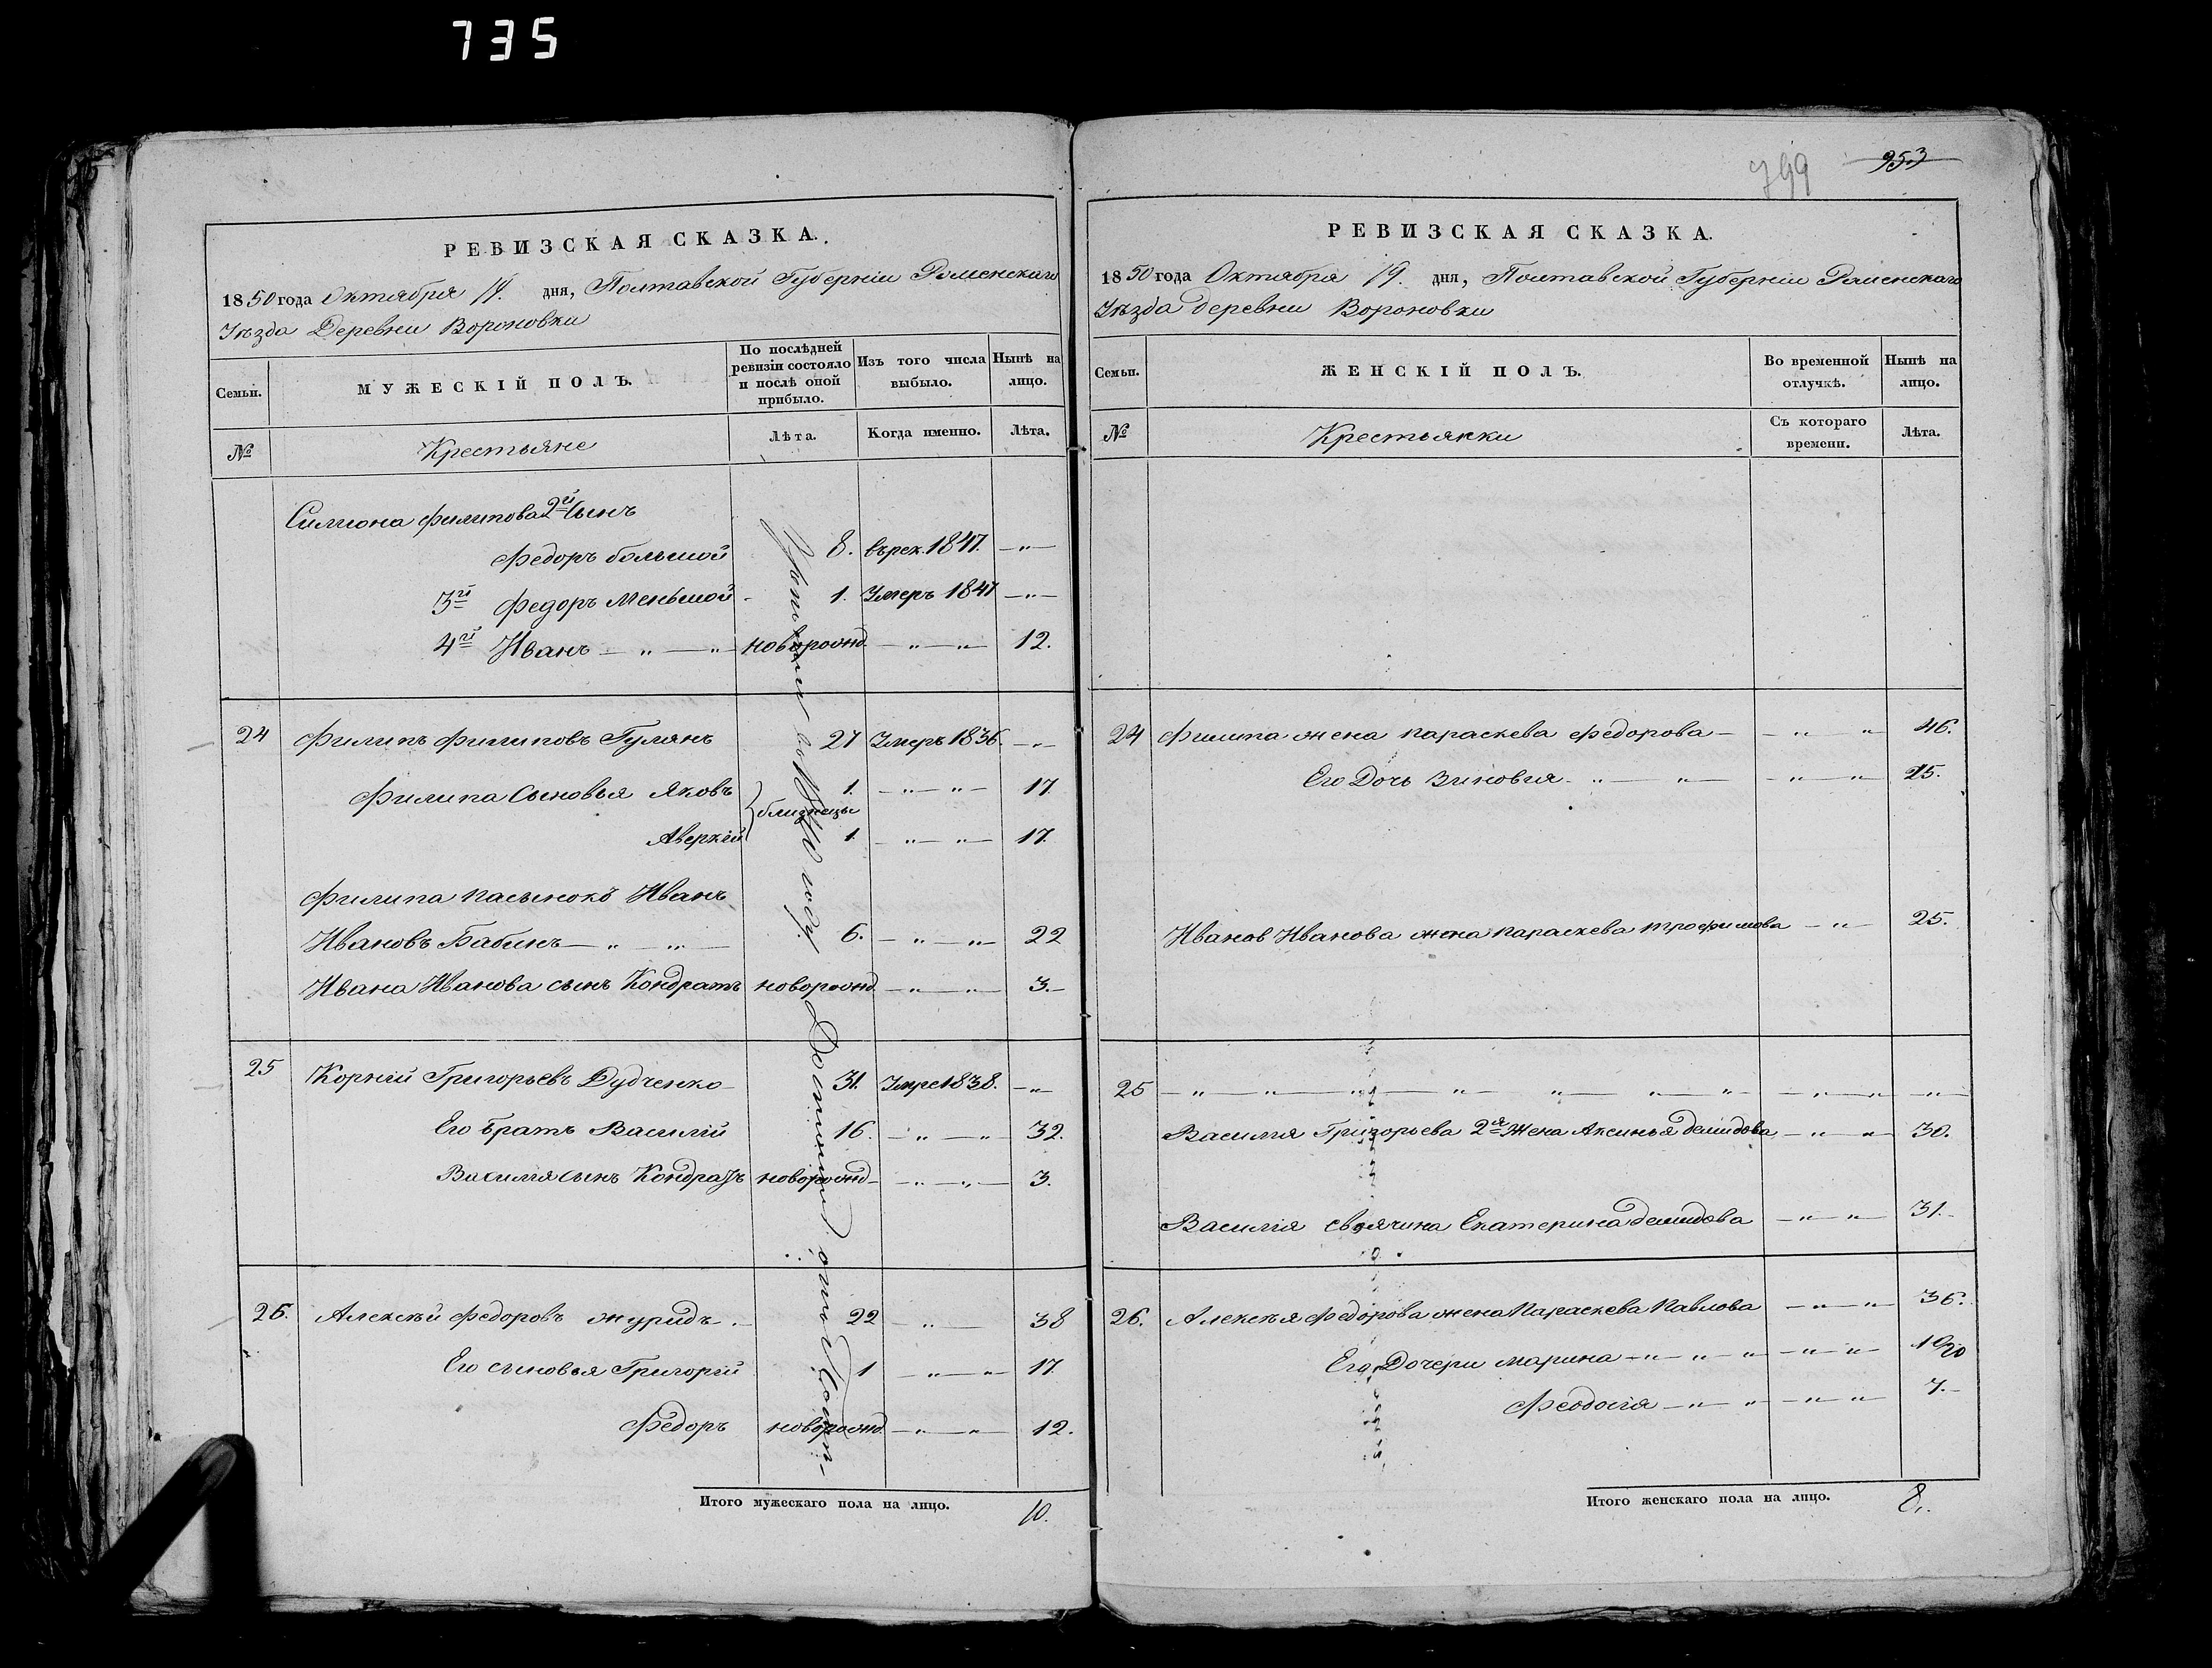 735
799 953
РЕВИЗСКАЯ СКАЗКА.
1850 года Октября 19. дня, Полтавской Губерніи Роменскаго
Уѣзда Деревни Вороновки
Семьи.
МУЖЕСКІЙ ПОЛЪ.
По послѣдней
ревизіи состояло
и послѣ оной
прибыло.
Изъ того числа
выбыло.
Нынѣ на
лицо.
№
Крестьяне
Лѣта.
Когда именно.
Лѣта.
Симиона Филипова 2й Сынъ
Федоръ большой 8. върек. 1847. — " —
3й Федоръ Меньшой - 1. Умеръ 1841 — " —
4й Иванъ — " — " — новорожд. — " — " — 12.
24 Филипъ Филиповъ Гулянъ 27 Умеръ 1836. — " —
Филипа Сыновья Яковъ 1. — " — " — 17.
близнецы
Аверкій 1. — " — " — 17.
Филипа пасынокъ Иванъ
Ивановъ Бабинъ — " — " — 6. — " — " — 22
Ивана Иванова сынъ Кондратъ новорожд. — " — " — 3.
25 Корній Григорьевъ Дудченко 31. Умре 1838. — " —
Его братъ Василій 16. — " — " 32.
Василія сынъ Кондратъ новорожд — " — " — 3.
26. Алексѣй Федоровъ Журидъ 22 — " — 38
Его сыновья Григорій 1 — " — " 17.
Федоръ новорожд. — " — " — 12.
Итого мужескаго пола на лицо. 10.
РЕВИЗСКАЯ СКАЗКА.
1850 года Октября 19. дня, Полтавской Губерніи Роменскаго
Уѣзда деревни Вороновки
Семьи.
ЖЕНСКІЙ ПОЛЪ.
Во временной
отлучкѣ.
Нынѣ на
лицо.
№
Крестьянки
Съ котораго
времени.
Лѣта.
24 Филипа жена Параскева Федорова — " " 46.
Его Дочь Зиновия — " — " — " — " — 15.
Иванов Иванова жена Параскева Трофимова — " — 25.
25 — " — " — " — " — " — " — " — " — " — " —
Василия Григорьева 2я Жена Аксинья Демидова — " — " 30.
Василія своячина Екатерина Демидова — " — " — 31.
26. Алексѣя Федорова жена Параскева Павлова — " — " — 36.
Его Дочери Марина — " — " — " — " — "
Феодосія — " — " — " — " — 7.
Итого женскаго пола на лицо. 8.